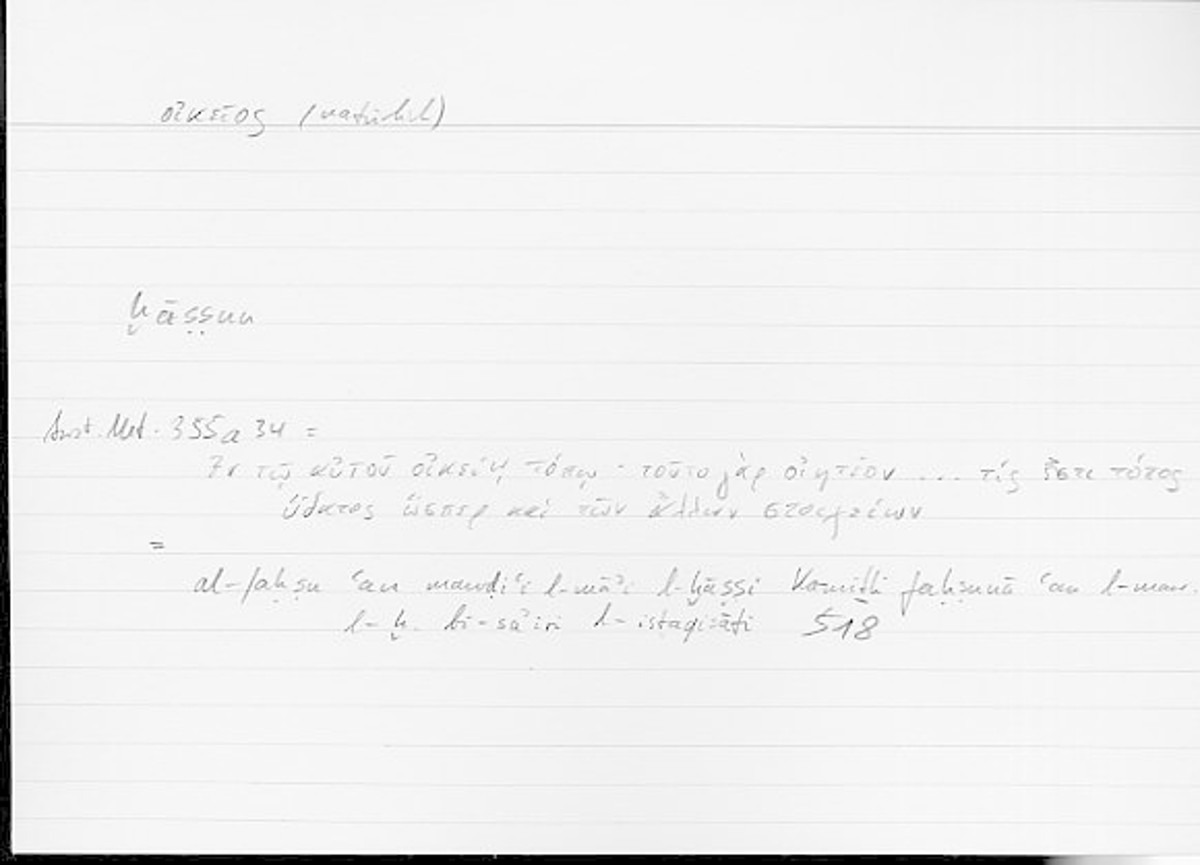 οἰκεῖος (natürlich)
ḫāṣṣun
Arist. Met. 355a 34 =
ἐν τῷ αὑτοῦ οἰκείῳ τόπῳ · τοῦτο γὰρ οἰητέον ... τίς ἐστι τόπος
ὕδατος ὥσπερ καὶ τῶν ἄλλων στοιχείων
=
al-faḥṣu ʿan mawḍiʿi l-māʾi l-ḫāṣṣi ka-miṯli faḥṣinā ʿan l-maw.
l-ḫ. bi-sāʾiri l-istaqisāti 518